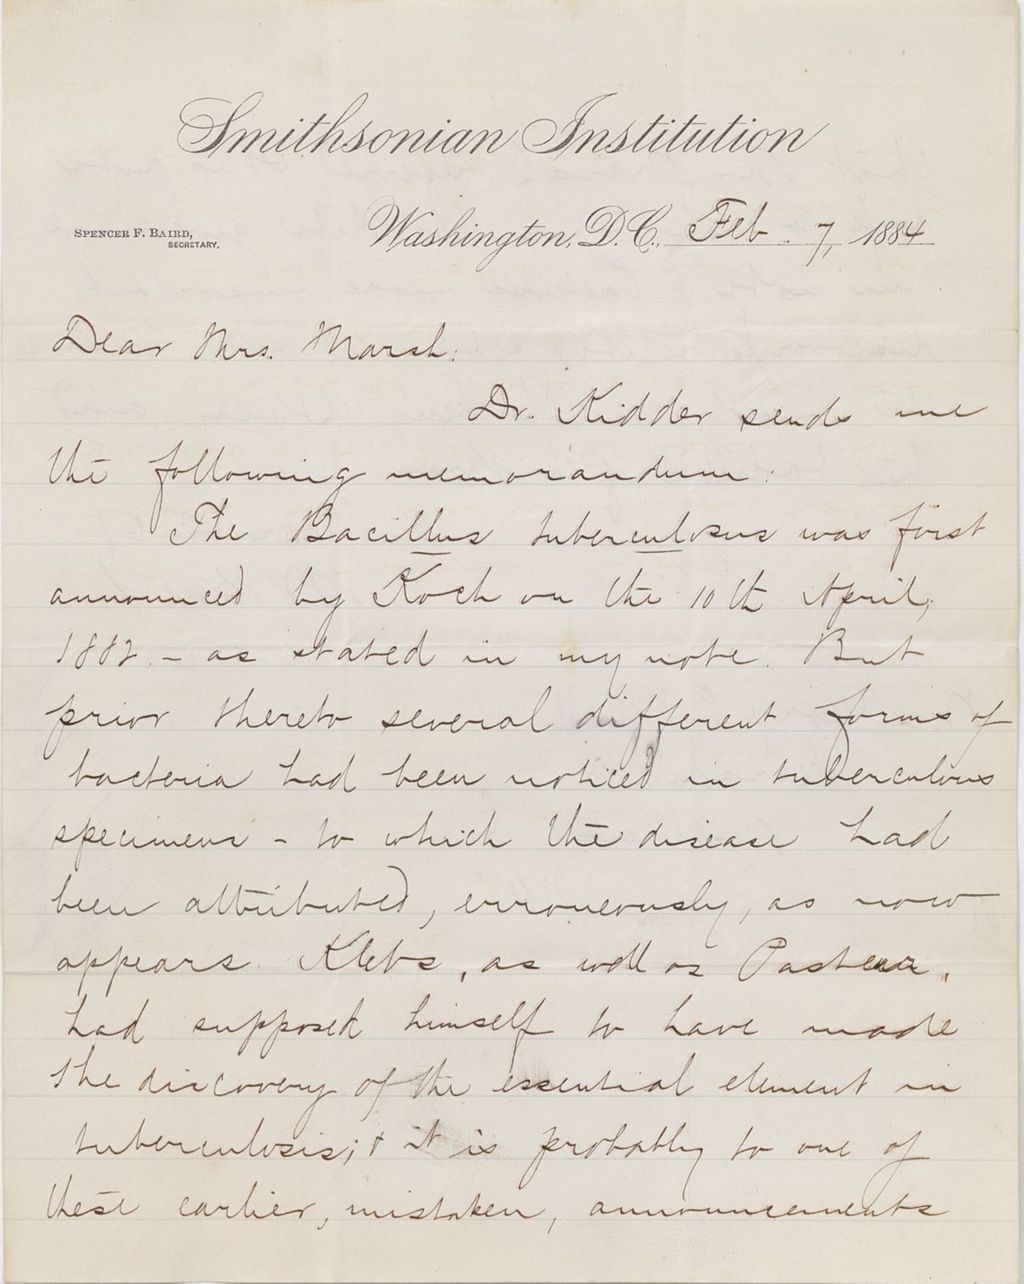 Smithsonian Institution
SPENCER F. BAIRD,
SECRETARY,
Washington, D.C., Feb. 7, 1884
Dear Mrs. Marsh:
Dr. Kidder sends me
the following memorandum:
The Bacillus tuberculosus was first
announced by Koch on the 10th April,
1882. - as stated in my note. But
prior thereto several different forms of
bacteria had been noticed in tuberculous
specimens - to which the disease had
been attributed, erroneously, as now
appears. Klebs, as well as Pasteur,
had supposed himself to have made
the discovery of the essential element in
tuberculosis; & it is probably to one of
these earlier, mistaken, announcements